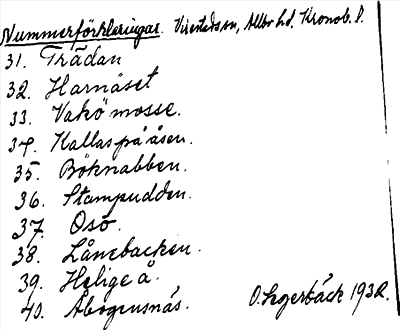 Nummerförklaringar. Virestads sn, Allbo hd. Kronob. l.
31. Trädan
32. Harnäset
33. Vakö mosse.
34. Kallas på åsen.
35. Böknabben.
36. Stampudden.
37. Osö.
38. Lånebacken.
39. Helige å.
40. Åbogeusnäs.
O. Legerbäck 1932.